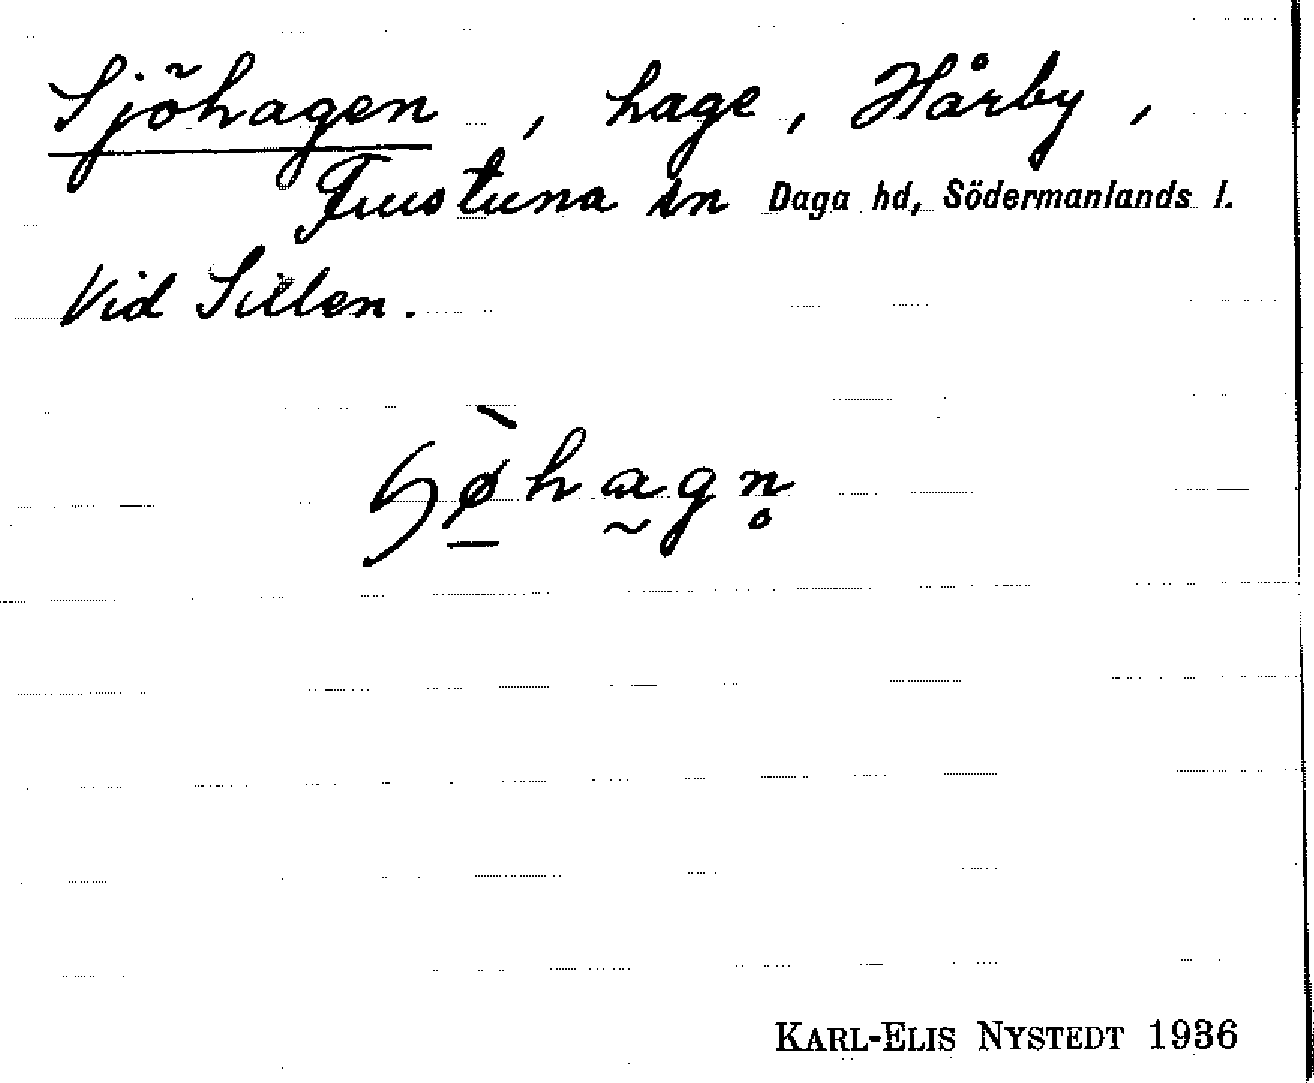 Sjöhagen, hage, Hårby,
Frustuna sn Daga hd, Södermanlands l.
Vid Sillen.
KARL-ELIS NYSTEDT 1936